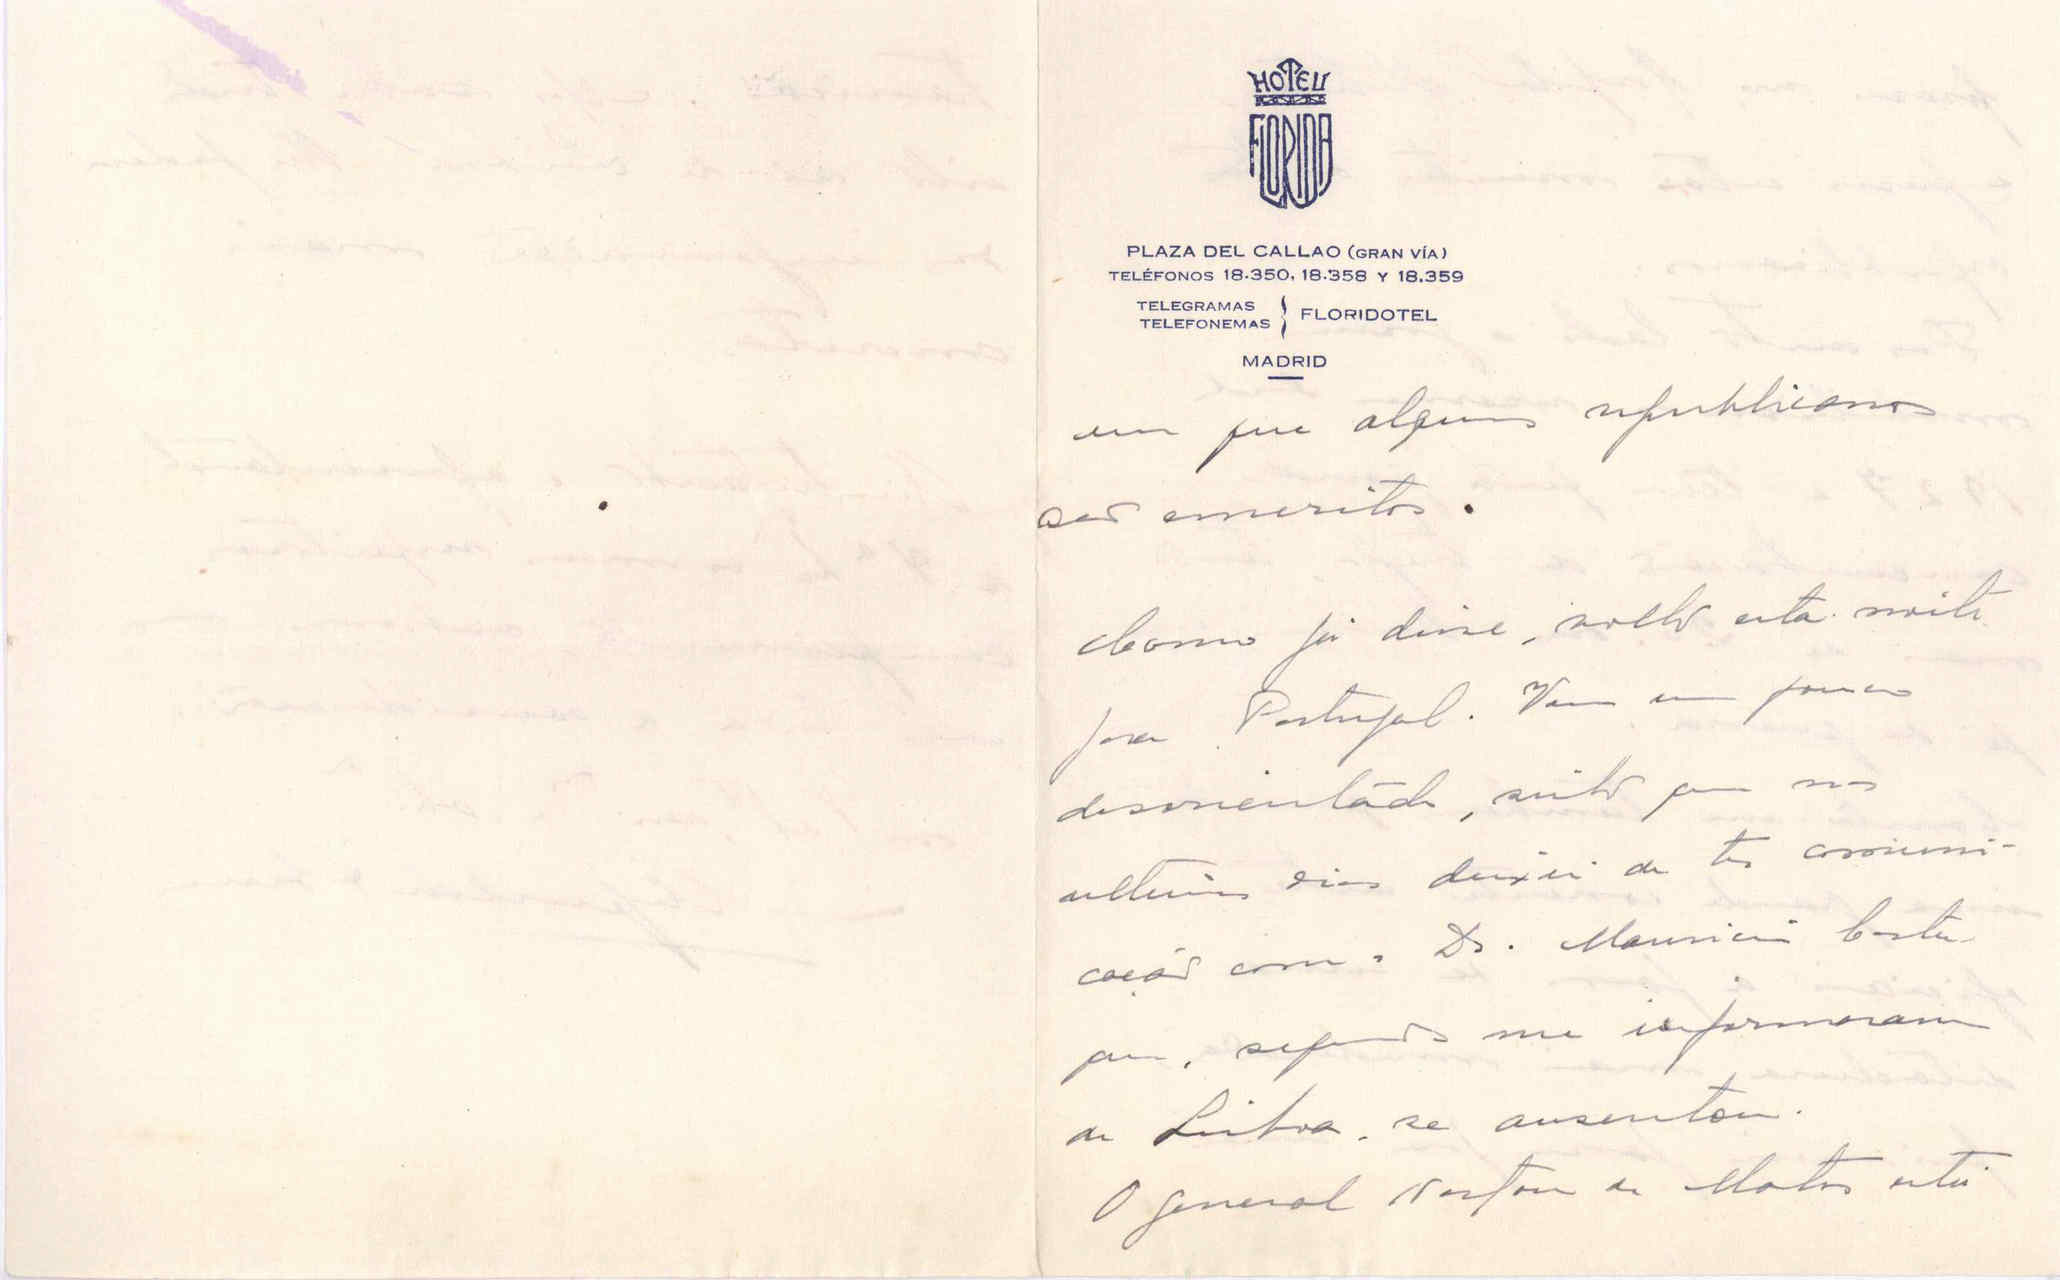 HOTEL
FLORIDA
PLAZA DEL CALLAO (GRAN VÍA)
TELÉFONOS 18.350, 18.358 Y 18.359
TELEGRAMAS
TELEFONEMAS } FLORIDOTEL
MADRID
em que alguns republicanos
são emeritos.
Como já disse, volto esta noite
para Portugal. Vou um pouco
desorientado, visto que nos
ultimos dias deixei de ter comuni-
cação com o Dr. Mauricio Costa
que, segundo me informaram
de Lisboa, se ausentou.
O general Norton de Matos está